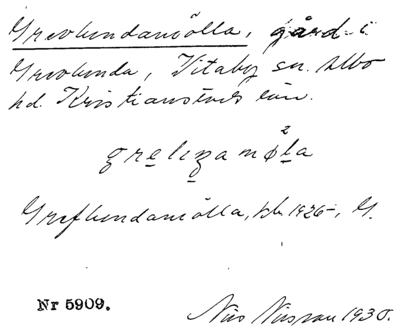 Grevlundamölla, gård i
Grevlunda, Vitaby sn. Albo
hd. Kristianstads län.
2
grelızamøla
Greflundamölla, jbk 1926-, G.
Nr 5909.
Nils Nilsson 1930.